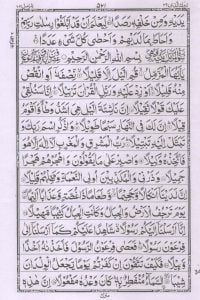 ۵۲۱
يَدَيْهِ وَمِنْ خَلْفِهٖ رَصَدًا ۝ لِّيَعْلَمَ اَنْ قَدْ اَبْلَغُوْا رِسٰلٰتِ رَبِّهِمْ
وَاَحَاطَ بِمَا لَدَيْهِمْ وَاَحْصٰى كُلَّ شَیْءٍ عَدَدًا ۝
بِسْمِ اللّٰهِ الرَّحْمٰنِ الرَّحِيْمِ
يٰۤاَيُّهَا الْمُزَّمِّلُ ۝ قُمِ الَّيْلَ اِلَّا قَلِيْلًا ۝ نِّصْفَهٗۤ اَوِ انْقُصْ
مِنْهُ قَلِيْلًا ۝ اَوْ زِدْ عَلَيْهِ وَرَتِّلِ الْقُرْاٰنَ تَرْتِيْلًا ۝ اِنَّا سَنُلْقِیْ
عَلَيْكَ قَوْلًا ثَقِيْلًا ۝ اِنَّ نَاشِئَةَ الَّيْلِ هِیَ اَشَدُّ وَطْاً وَّاَقْوَمُ
قِيْلًا ۝ اِنَّ لَكَ فِی النَّهَارِ سَبْحًا طَوِيْلًا ۝ وَاذْكُرِ اسْمَ رَبِّكَ وَ
تَبَتَّلْ اِلَيْهِ تَبْتِيْلًا ۝ رَبُّ الْمَشْرِقِ وَالْمَغْرِبِ لَاۤ اِلٰهَ اِلَّا هُوَ
فَاتَّخِذْهُ وَكِيْلًا ۝ وَاصْبِرْ عَلٰى مَا يَقُوْلُوْنَ وَاهْجُرْهُمْ هَجْرًا
جَمِيْلًا ۝ وَذَرْنِیْ وَالْمُكَذِّبِيْنَ اُولِی النَّعْمَةِ وَمَهِّلْهُمْ قَلِيْلًا ۝
اِنَّ لَدَيْنَاۤ اَنْكَالًا وَّجَحِيْمًا ۝ وَّطَعَامًا ذَا غُصَّةٍ وَّعَذَابًا اَلِيْمًا ۝
يَوْمَ تَرْجُفُ الْاَرْضُ وَالْجِبَالُ وَكَانَتِ الْجِبَالُ كَثِيْبًا مَّهِيْلًا ۝
اِنَّاۤ اَرْسَلْنَاۤ اِلَيْكُمْ رَسُوْلًا شَاهِدًا عَلَيْكُمْ كَمَاۤ اَرْسَلْنَاۤ اِلٰى
فِرْعَوْنَ رَسُوْلًا ۝ فَعَصٰى فِرْعَوْنُ الرَّسُوْلَ فَاَخَذْنٰهُ اَخْذًا
وَّبِيْلًا ۝ فَكَيْفَ تَتَّقُوْنَ اِنْ كَفَرْتُمْ يَوْمًا يَّجْعَلُ الْوِلْدَانَ
شِيْبًا ۝ السَّمَآءُ مُنْفَطِرٌۢ بِهٖ كَانَ وَعْدُهٗ مَفْعُوْلًا ۝ اِنَّ هٰذِهٖ